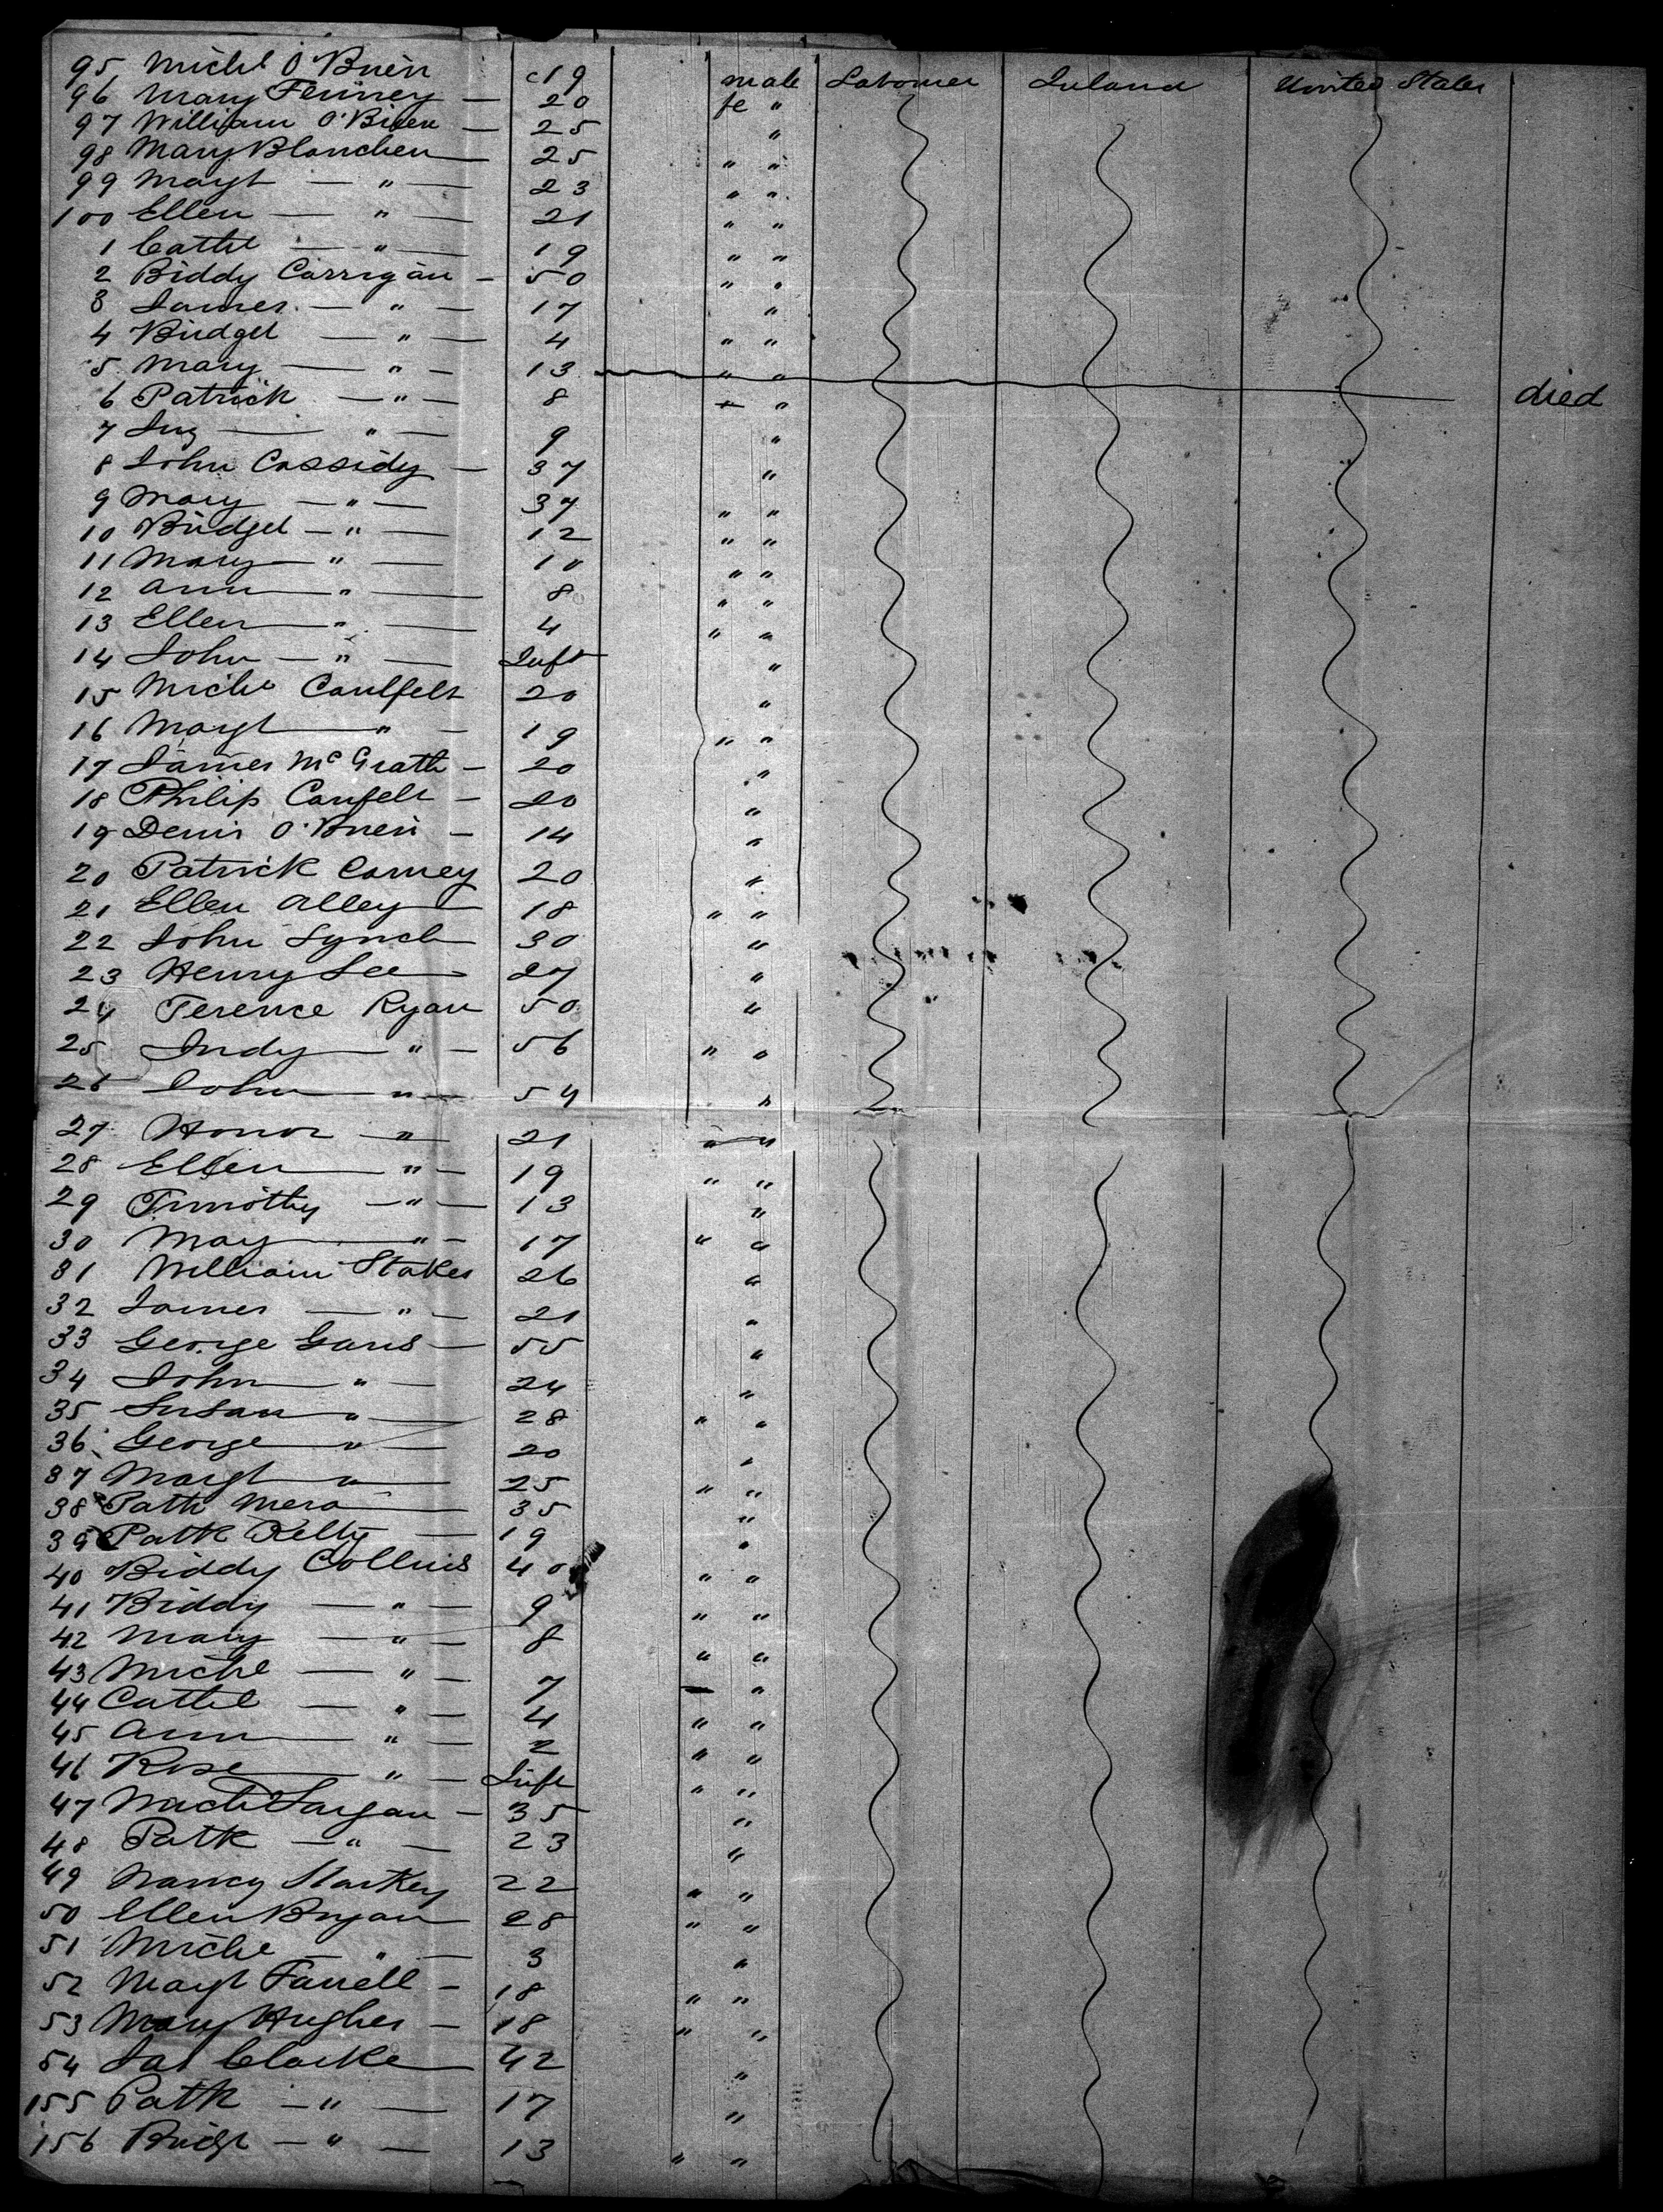 95 Michl O'Brien c19 male Labourer Ireland United States
96 Mary Feniney — 20 fe "
97 William O'Brien — 25 "
98 Mary Blanchen — 25 " "
99 Margt — " — 23 " "
100 Ellen — " — 21 " "
1 Cathe — " — 19 " "
2 Biddy Corrigan — 50 " "
3 James — " — 17 "
4 Bridget — " — 4 " "
5 Mary — " — 13 " " died
6 Patrick — " — 8 "
7 — " — 9 "
8 John Cassidy — 37 "
9 Mary — " — 37 " "
10 Bridget — " — 12 " "
11 Mary — " — 10 " "
12 Ann — " — 8 " "
13 Ellen — " — 4 " "
14 John — " — Inft "
15 Michl Caulfelt 20 "
16 Margt — " — 19 " "
17 James McGrath — 20 "
18 Philip Caufelt — 20 "
19 Denis O'Brien — 14 "
20 Patrick Carney 20 "
21 Ellen Alley — 18 " "
22 John Lynch 30 "
23 Henry Lee — 27 "
24 Terence Ryan 50 "
25 Judy — " — 56 " "
26 John — " — 54 "
27 Honor — " 21 " "
28 Ellen — " — 19 " "
29 Timothy — " — 13 "
30 May — " — 17 " "
31 William Stakes 26 "
32 James — " — 21 "
33 George Gans — 55 "
34 John — " — 24 "
35 Susan " — 28 " "
36 George " — 20 "
37 Margt " — 25 " "
38 Patk Mera — 35 "
39 Patk Kelly — 19 "
40 Biddy Collins 40 " "
41 Biddy — " — 9 " "
42 Mary — " — 8 " "
43 Michl — " — 7 "
44 Cathe — " — 4 " "
45 Ann — " — 2 " "
46 Rose — " — Inft " "
47 Largan — 35 "
48 Patk — " — 23 "
49 Nancy Starkey 22 " "
50 Ellen Bryan 28 " "
51 Michl — " — 3 "
52 Margt Farrell — 18 " "
53 Mary Hughes — 18 " "
54 Jas Clarke 42 "
155 Patk — " — 17 "
156 Bridgt — " — 13 " "